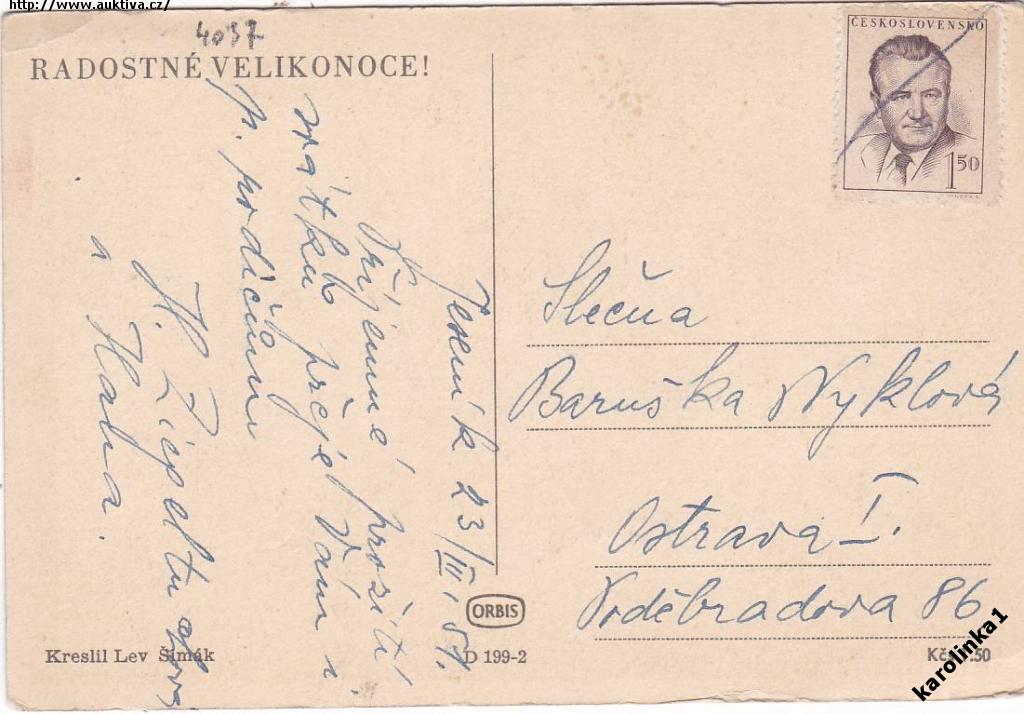 http://www.auktiva.cz/
4037
RADOSTNÉ VELIKONOCE!
Jeseník 23/III 51.
Příjemné prožití
svátků přeje Vám i
p. rodičům
H.
a Hana.
ČESKOSLOVENSKO
1 50
Slečna
Baruška Vyklová
Ostrava I.
Poděbradova 86
ORBIS
Kreslil Lev Šimák
D 199-2
Kčs 1.50
karolinka1